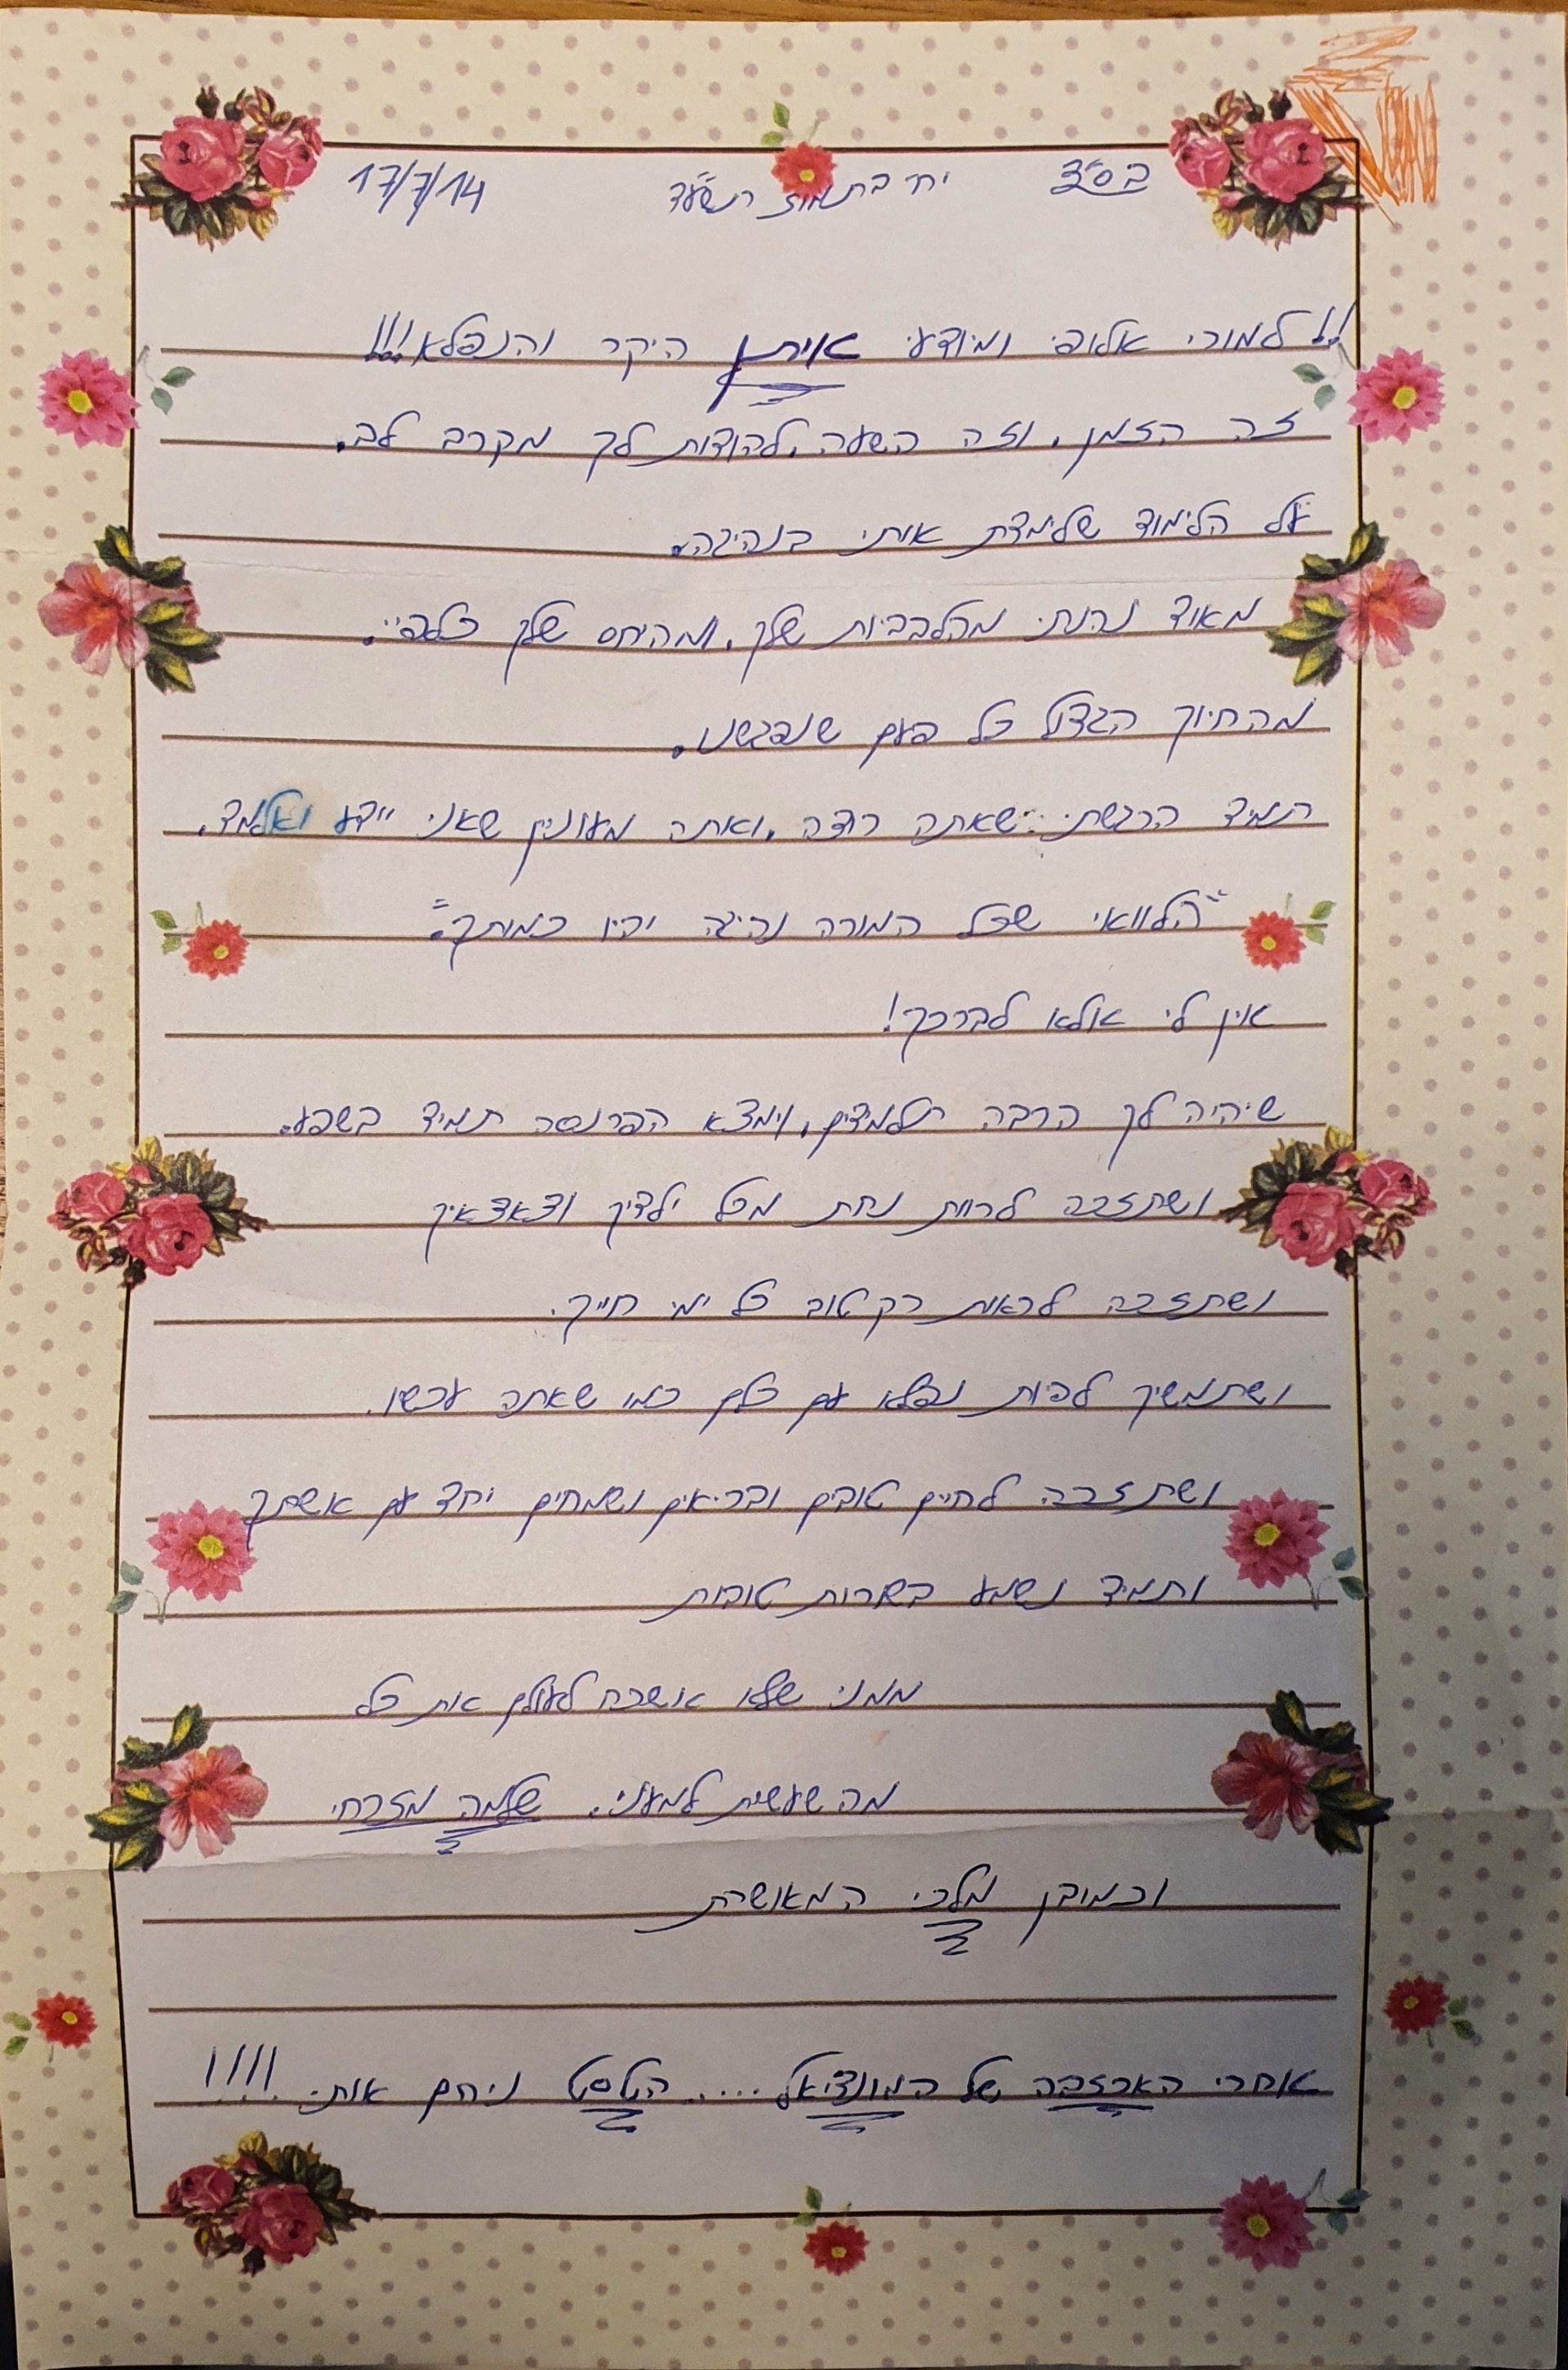 בס״ד יח׳ בתמוז תשע״ד 17/7/14
!! למורי אלופי ומיודעי איתן היקר והנפלא!!!
זה הזמן, וזה השעה, להודות לך מקרב לב.
על הלימוד שלימדת אותי בנהיגה.
מאוד נהנתי מהלבביות שלך, ומהיחס שלך כלפיי.
מהחיוך הגדול כל פעם שנפגשנו.
תמיד הרגשתי שאתה רוצה, ואתה מעונין שאני יידע ואלמד.
"הלוואי שכל המורה נהיגה יהיו כמותך."
אין לי אלא לברכך!
שיהיה לך הרבה תלמידים, וימצא הפרנסה תמיד בשפע.
ושתזכה לרוות נחת מכל ילדיך וצאצאיך
ושתזכה לראות רק טוב כל ימי חייך.
ושתמשיך להיות נפלא עם כולם כמו שאתה עכשו.
ושתזכה לחיים טובים ובריאים ושמחים יחד עם אשתך
ותמיד נשמע בשורות טובות
ממני שלא אשכח לעולם את כל
מה שעשית למעני. שלמה מזרחי
וכמובן מלכי המאושרת
אחרי האכזבה של המונדיאל .... הטסט ניחם אותי !!!!